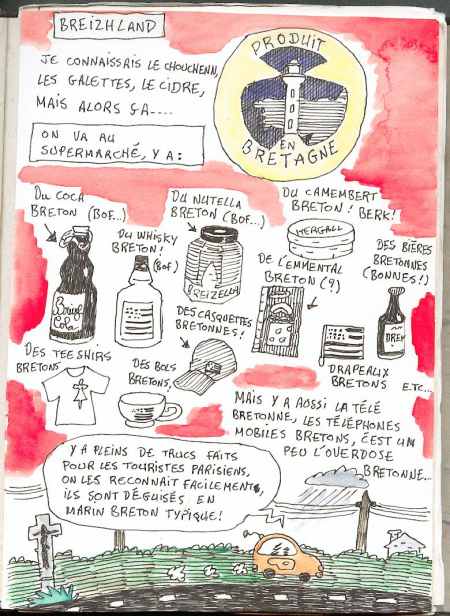 BREIZHLAND
JE CONNAISSAIS LE CHOUCHENN,
LES GALETTES, LE CIDRE,
MAIS ALORS ÇA....
PRODUIT
EN
BRETAGNE
ON VA AU
SUPERMARCHÉ, Y A:
DU COCA
BRETON (BOF...)
Breizh
Cola
DU WHISKY
BRETON!
(BOF)
DU NUTELLA
BRETON (BOF...)
BREIZELLA
DU CAMEMBERT
BRETON! BERK!
MERGALL
DE L'EMMENTAL
BRETON (?)
DES BIÈRES
BRETONNES
(BONNES!)
DES TEE SHIRS
BRETONS
DES BOLS
BRETONS,
DES CASQUETTES
BRETONNES!
DRAPEAUX
BRETONS
ETC...
MAIS Y A AUSSI LA TÉLÉ
BRETONNE, LES TÉLÉPHONES
MOBILES BRETONS, C'EST UN
PEU L'OVERDOSE
BRETONNE...
Y A PLEINS DE TRUCS FAITS
POUR LES TOURISTES PARISIENS,
ON LES RECONNAIT FACILEMENT,
ILS SONT DÉGUISÉS EN
MARIN BRETON TYPIQUE!